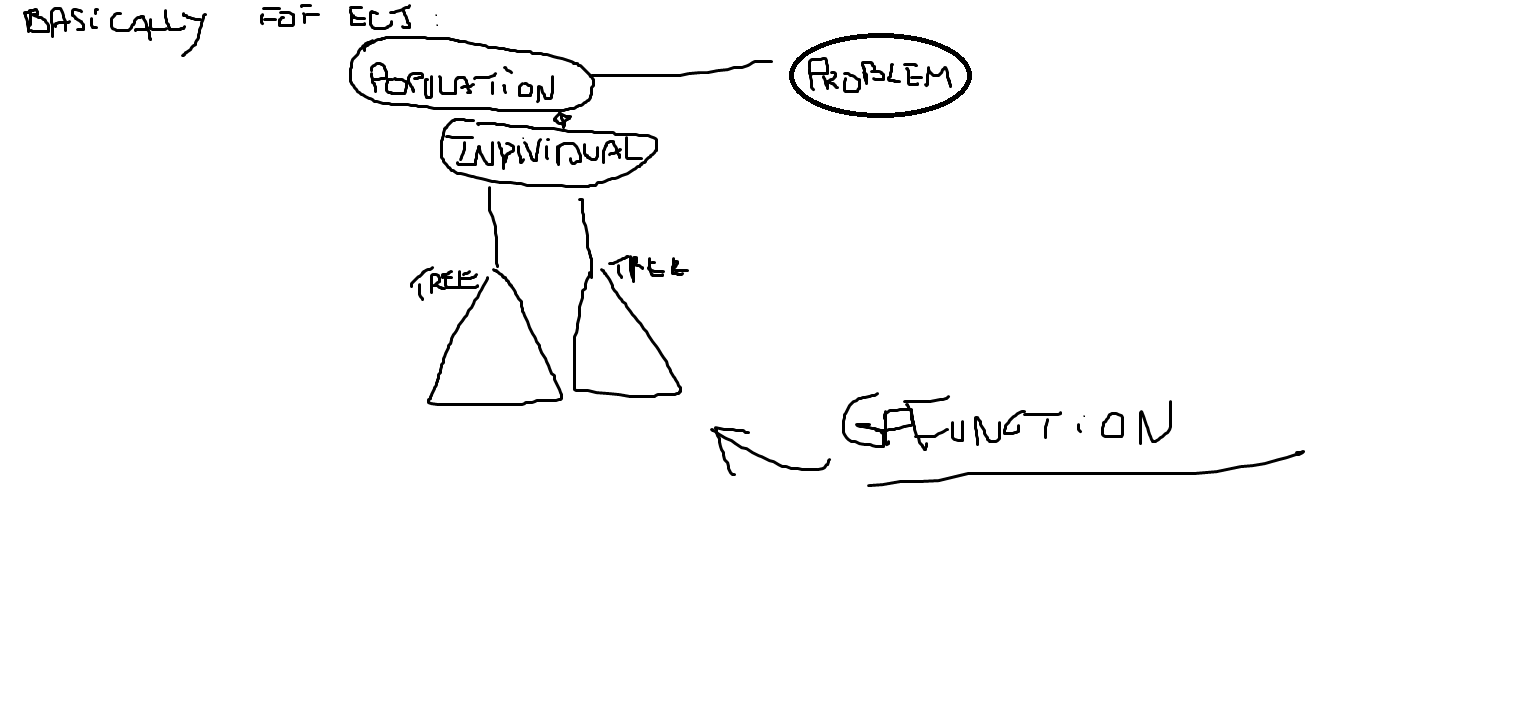 BASiCALLY FOF ECJ :
POPULATiON
PROBLEM
INDIViDUAL
TREE
TREE
GPFUNCTiON